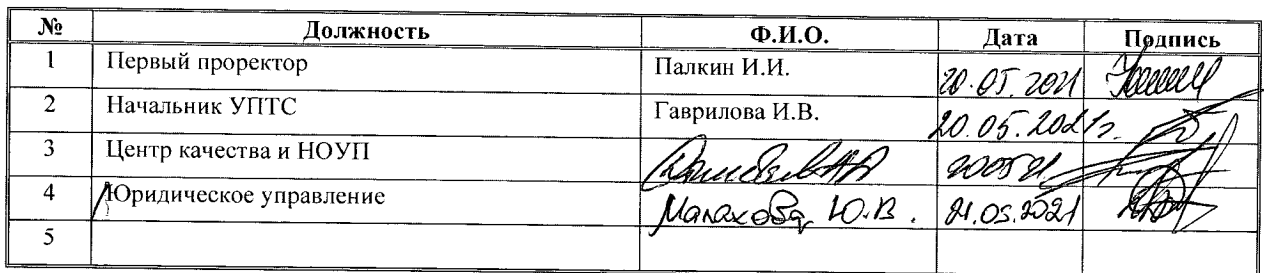 № Должность Ф.И.О. Дата Подпись
1 Первый проректор Палкин И.И. 20.05.2021
2 Начальник УПТС Гаврилова И.В. 20.05.2021г.
3 Центр качества и НОУП 200521
4 Юридическое управление Малахова Ю.В. 21.05.2021
5